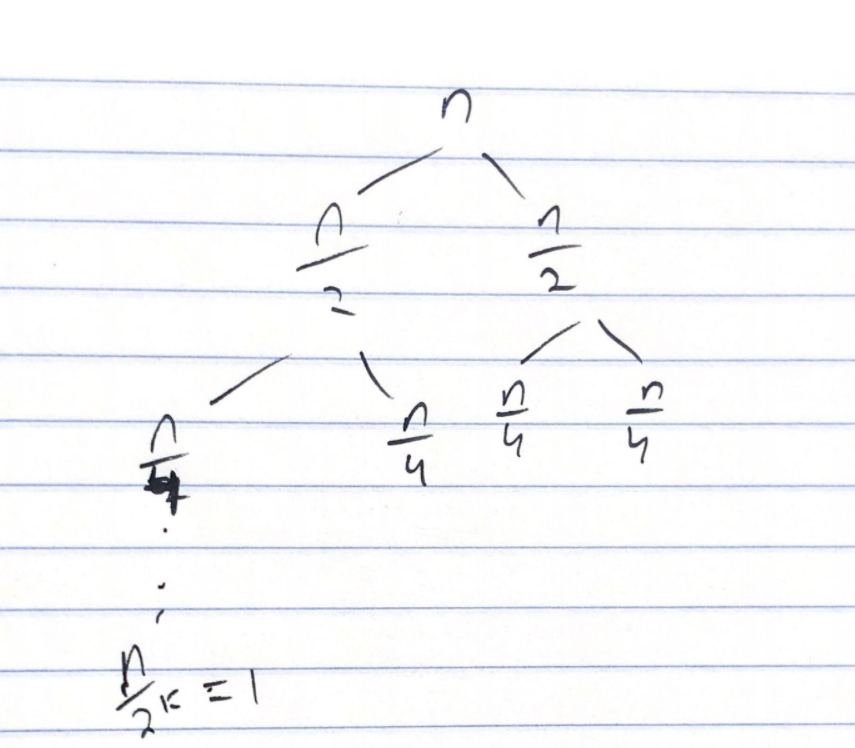 n
n/2 n/2
n/4 n/4 n/4 n/4
n/2^k = 1